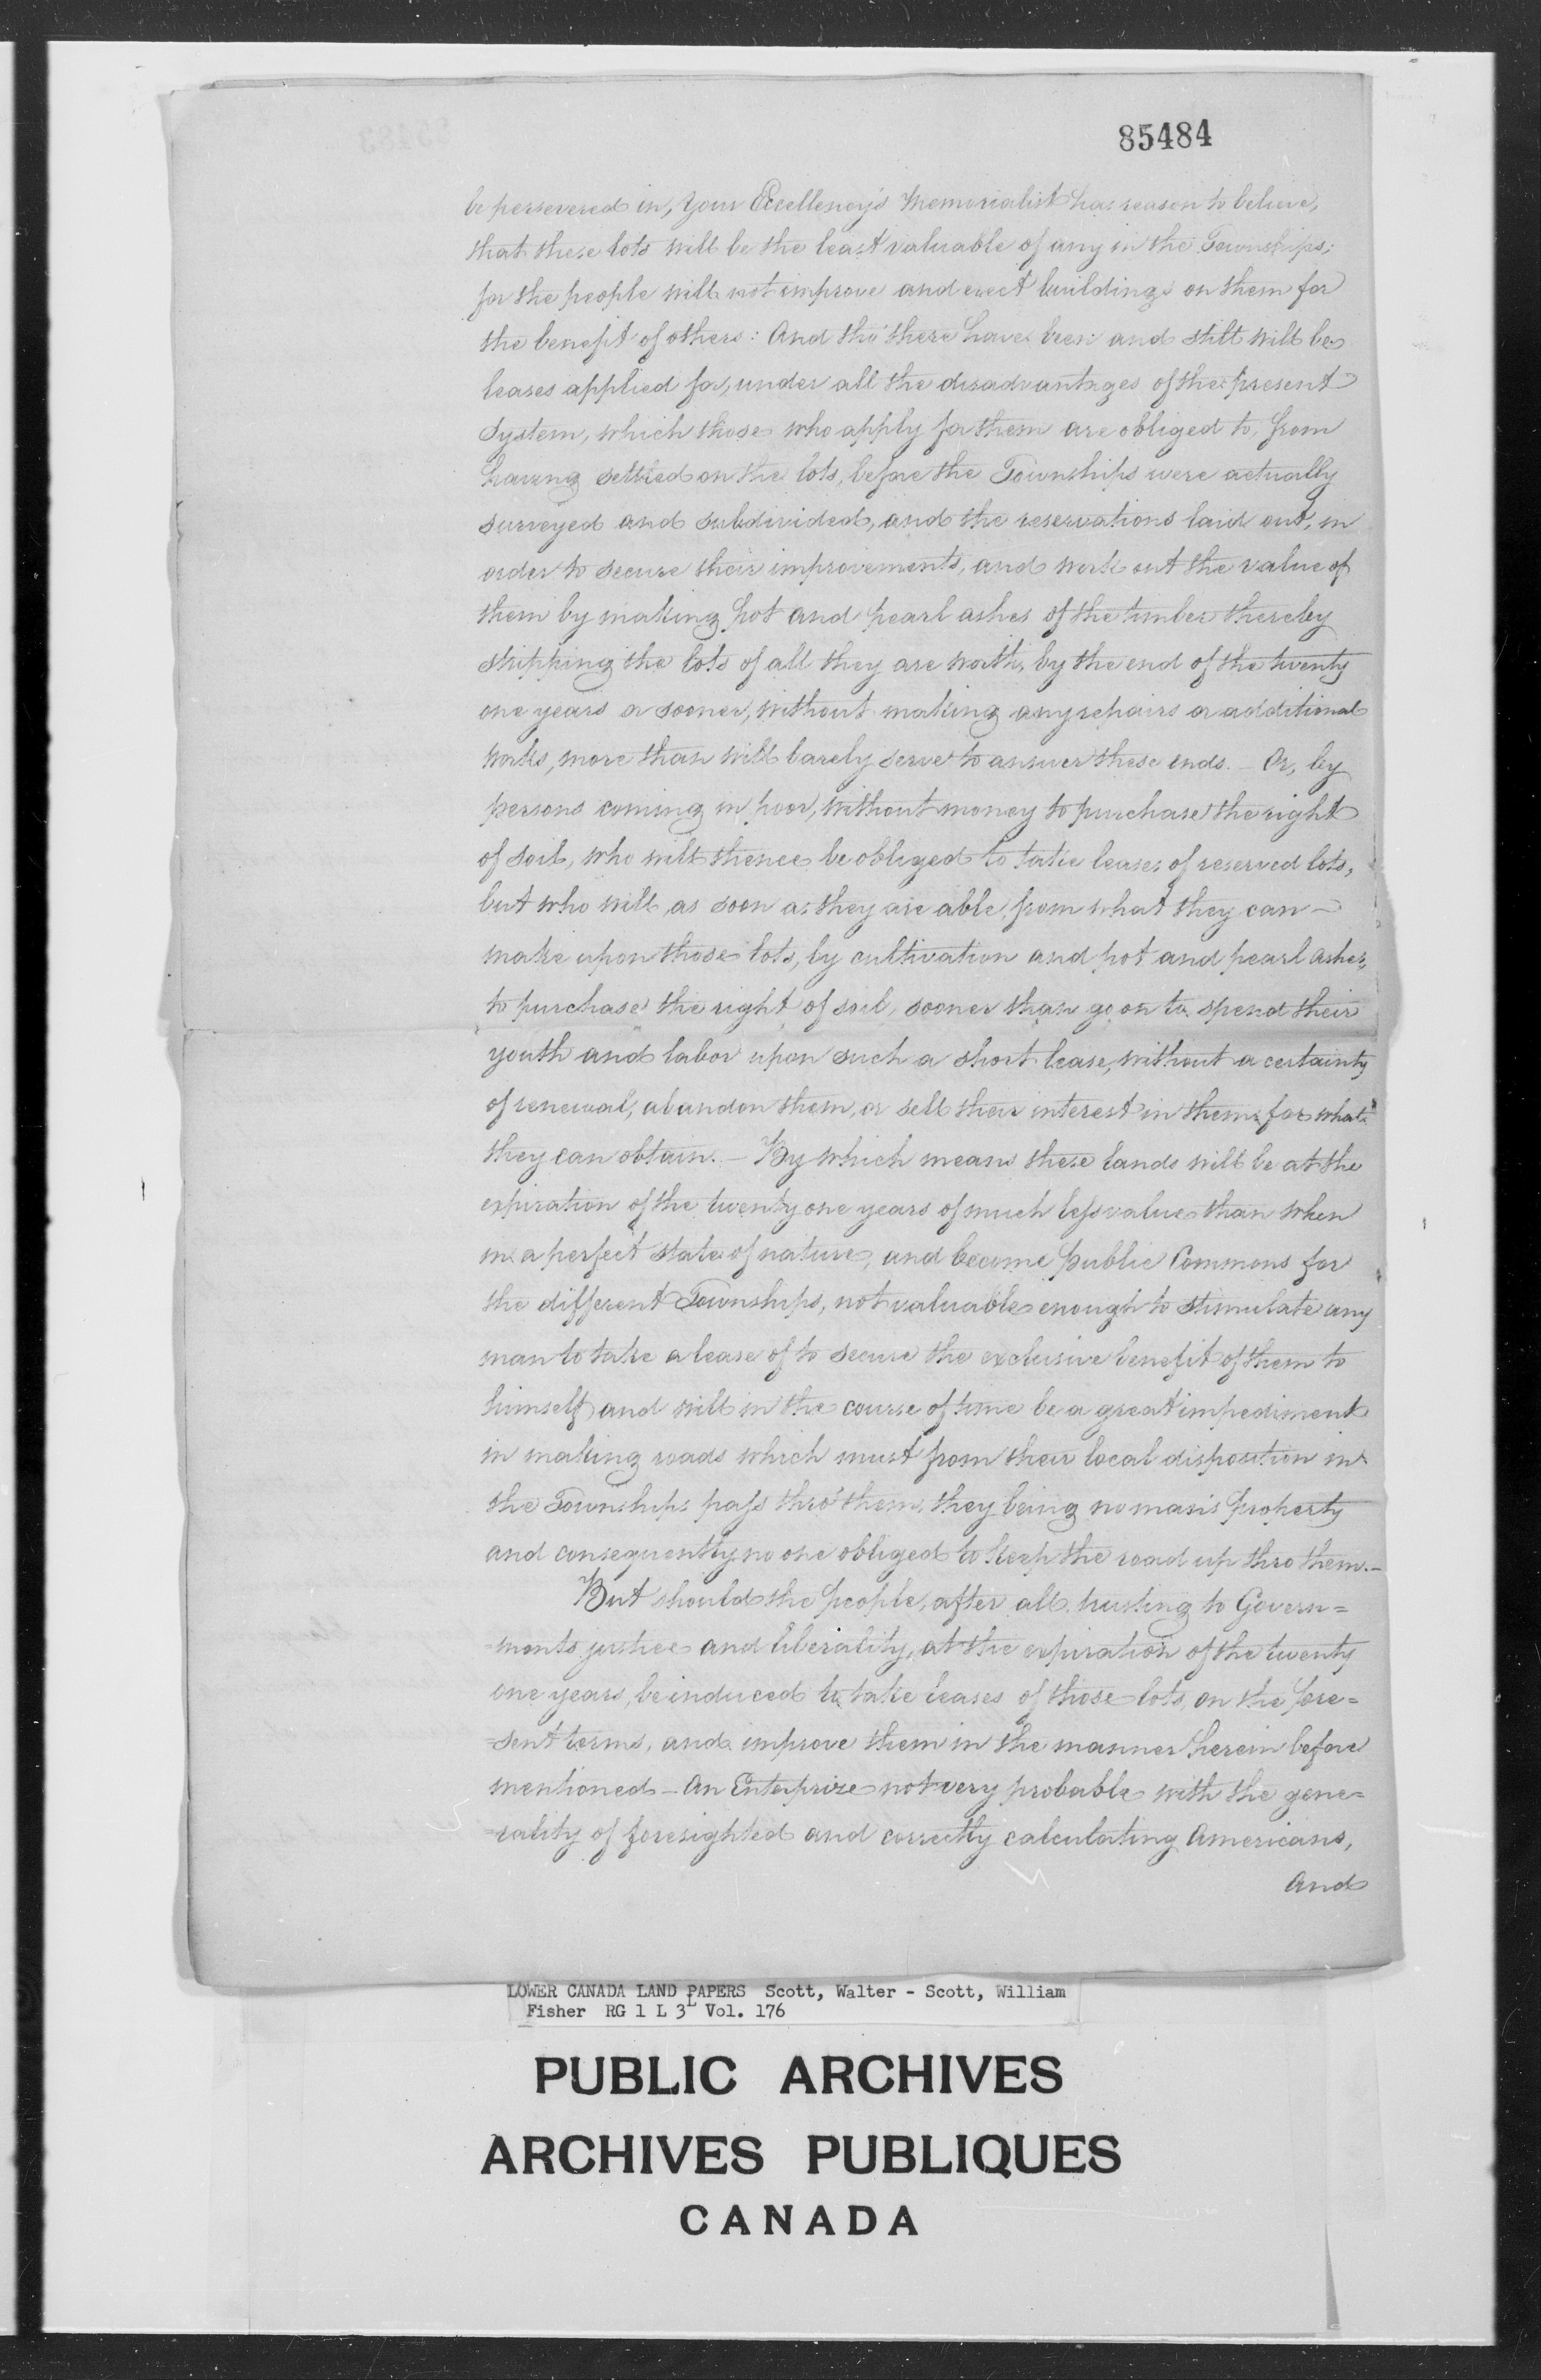 85484
be persevered in, Your Excellency's Memorialist has reason to believe,
that these lots will be the least valuable of any in the Townships;
for the people will not improve and erect buildings on them for
the benefit of others: And tho' there have been and still will be
leases applied for, under all the disadvantages of the present
System, which those who apply for them are obliged to, from
having settled on the lots, before the Townships were actually
surveyed and subdivided, and the reservations laid out, in
order to secure their improvements, and work out the value of
them by making pot and pearl ashes of the timber thereby
stripping the lots of all they are worth, by the end of the twenty
one years or sooner, without making any repairs or additional
works, more than will barely serve to answer these ends. – Or, by
persons coming in poor, without money to purchase the right
of soil, who will thence be obliged to take leases of reserved lots,
but who will, as soon as they are able, from what they can –
make upon those lots, by cultivation and pot and pearl ashes,
to purchase the right of soil, sooner than go on to spend their
youth and labor upon such a short lease, without a certainty
of renewal, abandon them, or sell their interest in them for what
they can obtain. – By which means these lands will be at the
expiration of the twenty one years of much less value than when
in a perfect state of nature, and become public Commons for
the different Townships, not valuable enough to stimulate any
man to take a lease of to secure the exclusive benefit of them to
himself and will in the course of time be a great impediment
in making roads which must from their local disposition in
the Townships pass thro' them, they being no man's property
and consequently no one obliged to keep the road up thro them. –
But should the people, after all, trusting to Govern=
=ments justice and liberality, at the expiration of the twenty
one years, be induced to take leases of those lots, on the pre=
=sent terms, and improve them in the manner herein before
mentioned – An Enterprize not very probable with the gene=
=rality of foresighted and correctly calculating Americans,
And
LOWER CANADA LAND PAPERS Scott, Walter - Scott, William
Fisher RG 1 L 3L Vol. 176
PUBLIC ARCHIVES
ARCHIVES PUBLIQUES
CANADA